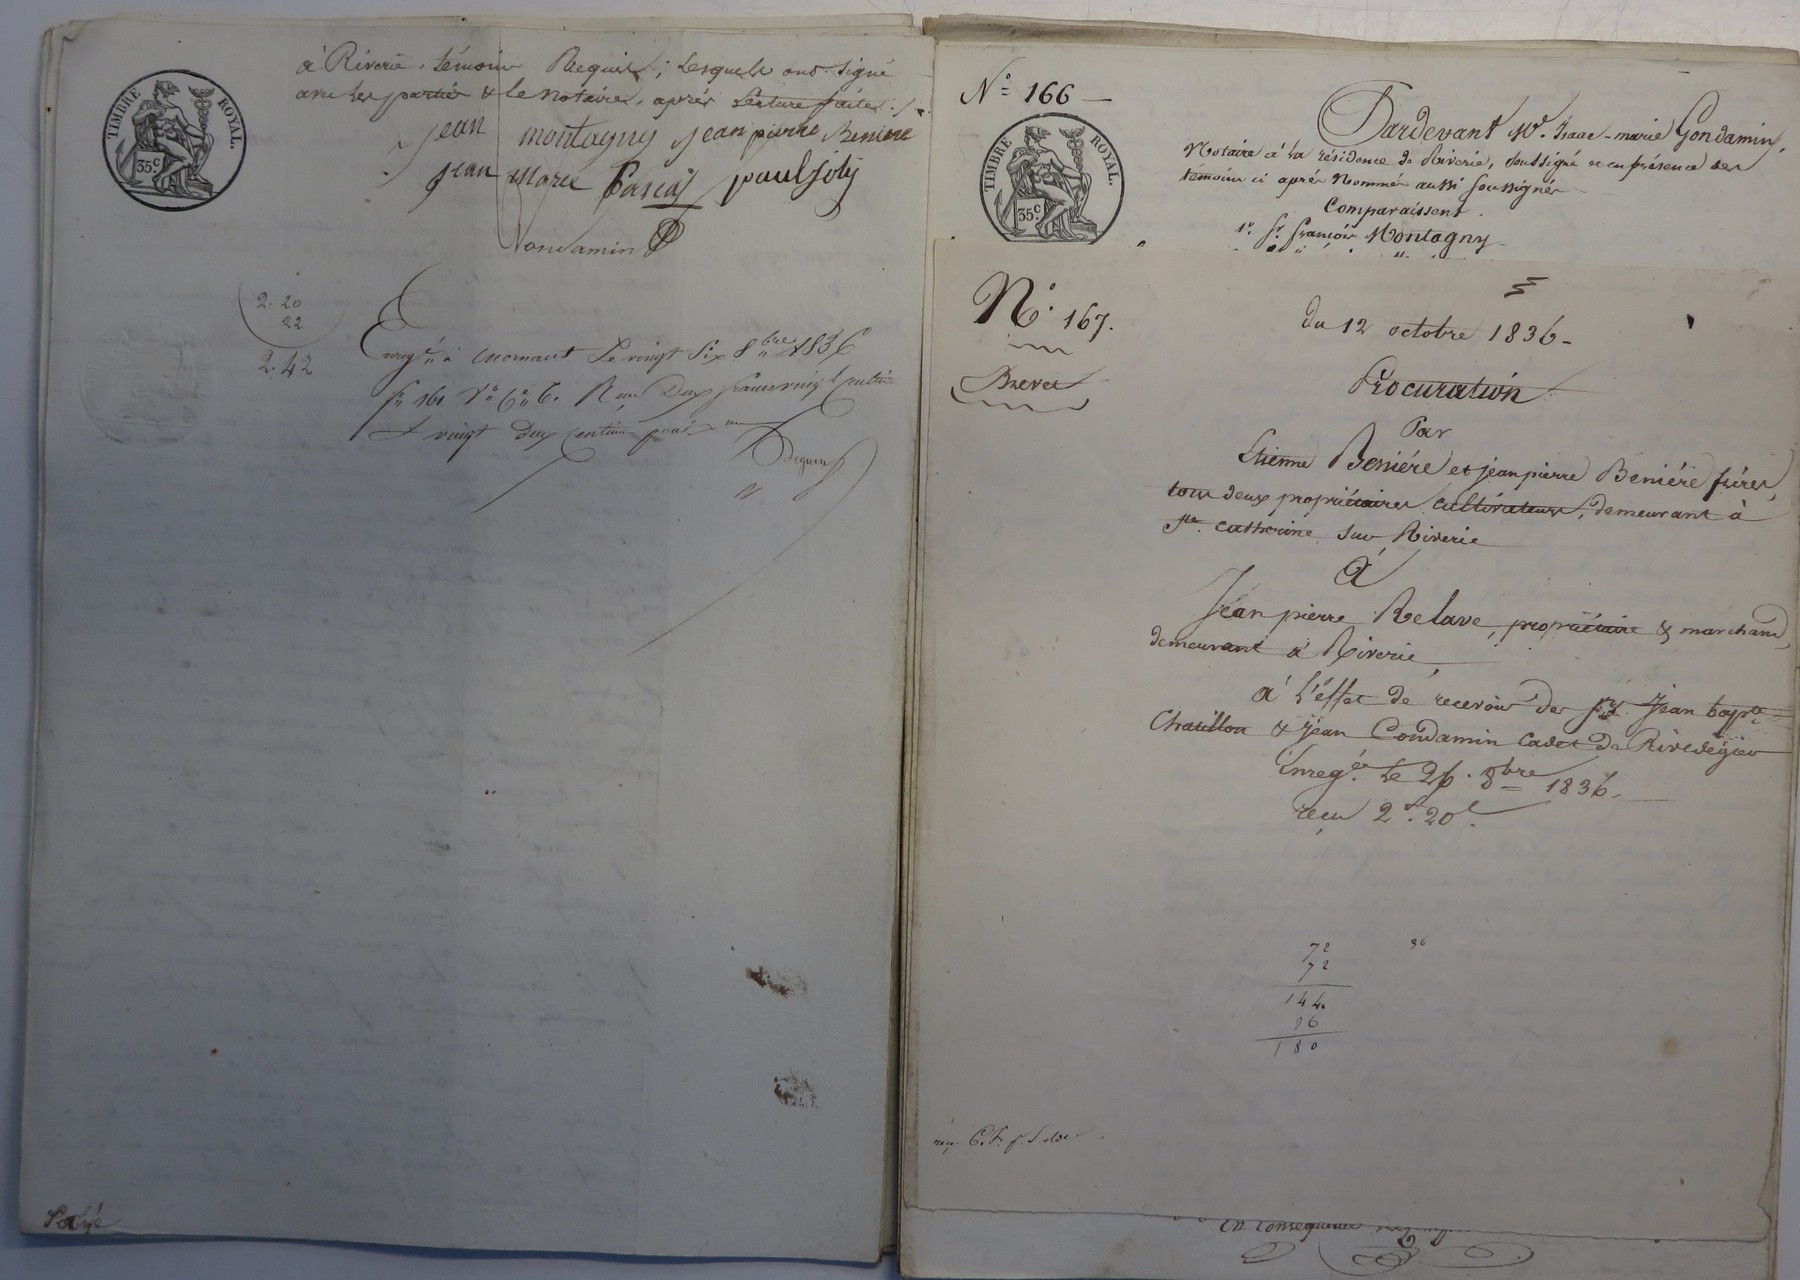 à Riverie, témoins Requis, Lesquels ont signé
avec les parties & le notaire, après Lecture faite.
TIMBRE ROYAL.
35c
jean montagny jean pierre Beniere
jean Marie Pascal paul joly
Condamin
2. 20
22
2. 42
Enregé à Mornant Le vingt six 8bre 1836
fo 161 Vo Co 6. Reçu Deux francs vingt centimes
& vingt deux centimes pour
Payé
No 166
TIMBRE ROYAL.
35c
Pardevant Me. Isaac-marie Condamin,
Notaire à la résidence de Riverie, soussigné et en présence des
témoins ci après Nommés aussi soussignés
Comparaissent
1o. Sr. françois Montagny
No. 167.
Brevet
du 12 octobre 1836
Procuration
Par
Etienne Benière et jean pierre Bénière frères,
tous deux propriétaires cultivateurs, demeurant à
Ste. Catherine sur Riverie
à
Jean pierre Relave, propriétaire & marchand,
demeurant à Riverie,
à l'effet de recevoir des srs Jean bapte
Chatillon & Jean Condamin cadet de Rivedegier
Enregé. le 26. 8bre 1836.
reçu 2f. 20c.
72
72
144
36
180
36
en consequence